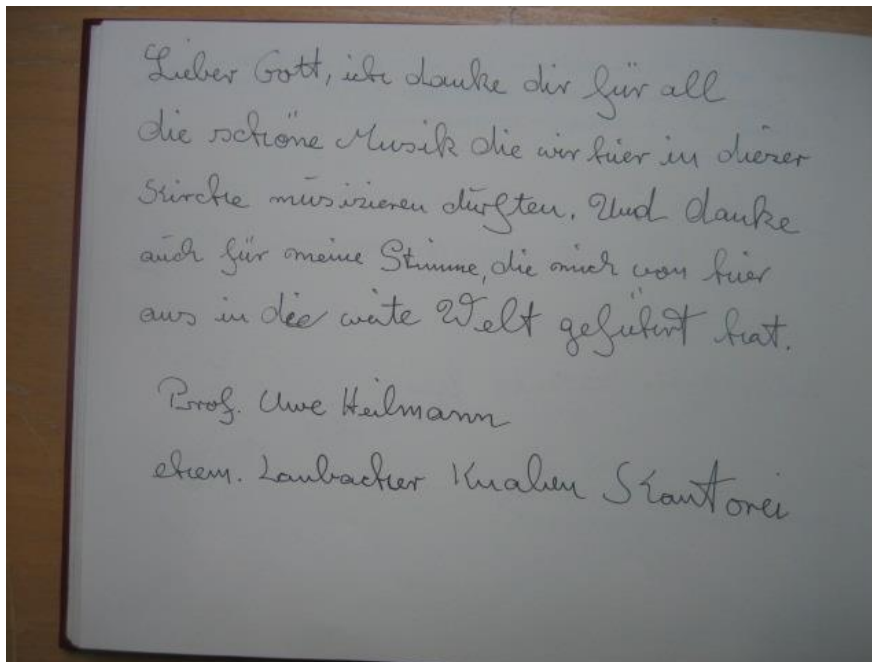 Lieber Gott, ich danke dir für all
die schöne Musik die wir hier in dieser
Kirche musizieren durften. Und danke
auch für meine Stimme, die mich von hier
aus in die weite Welt geführt hat.
Prof. Uwe Heilmann
ehem. Laubacher Knaben Kantorei